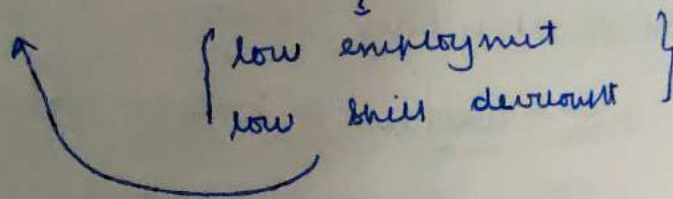 { low employmnt }
low skill develomnt